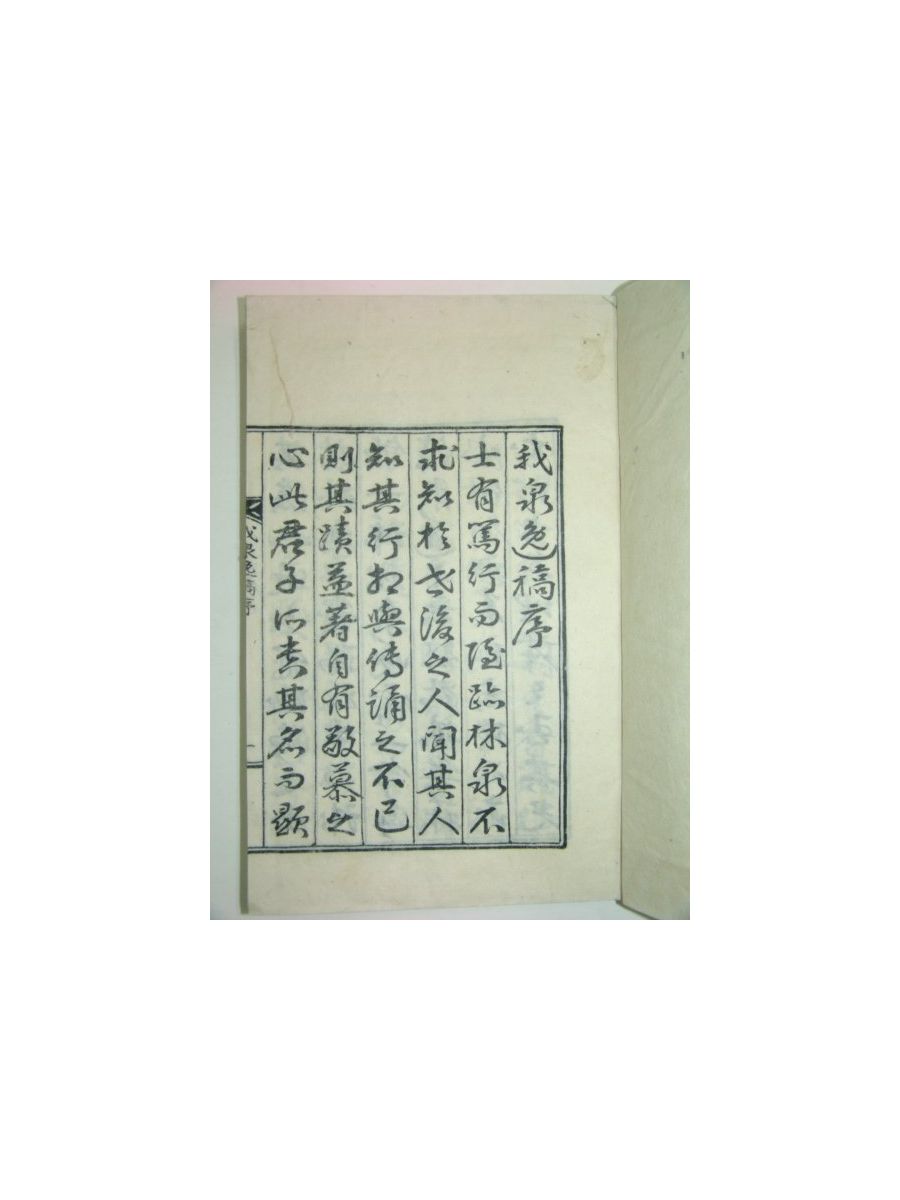 我泉逸稿序
士有篤行而隱跡林泉不
求知於世後之人聞其人
知其行相與傳誦之不已
則其蹟益著自有敬慕之
心此君子所貴其名而顯
我泉逸稿序
一